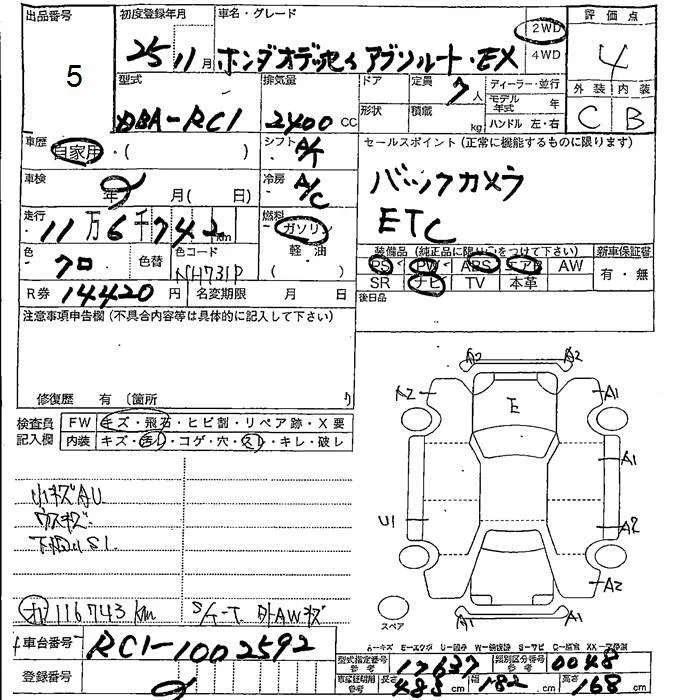 出品番号 5
初度登録年月 25 11月
車名・グレード ホンダオデッセイ アブソルート・EX
2WD
4WD
評価点 4
外装 内装
C B
型式 DBA-RC1
排気量 2400 CC
ドア
形状
定員 7人
積載 kg
ディーラー・並行
モデル年式 年
ハンドル 左・右
車歴 自家用・( )
シフト A/T
セールスポイント (正常に機能するものに限ります)
バックカメラ
ETC
車検 年 月 ( 日)
冷房 A/C
走行 11万6千742 km
燃料 ガソリン
軽油
・( )
色 クロ
色替
色コード NH731P
装備品 (純正品に限り○をつけて下さい)
新車保証書
PS PW ABS エアB AW
有・無
SR ナビ TV 本革
R券 14420円
名変期限 月 日
後日品
注意事項申告欄 (不具合内容等は具体的に記入して下さい)
修復歴 有 〔箇所 〕
検査員記入欄
FW キズ・飛石・ヒビ割・リペア跡・X要
内装 キズ・汚れ・コゲ・穴・スレ・キレ・破レ
小キズAU
ウスキズ
下廻りS1
116743km S/T 外AWキズ
A2 A2
A2 E A1
A1
U1 A2
A2
A1 A1
スペア
車台番号 RC1-1002592
登録番号
A-キズ E-エクボ U-凹み W-補修跡 S-サビ C-腐食 XX-交換済
型式指定番号 参考 17637
類別区分番号 参考 0048
車庫証明用 参考 長さ 483cm 幅 182cm 高さ 168cm